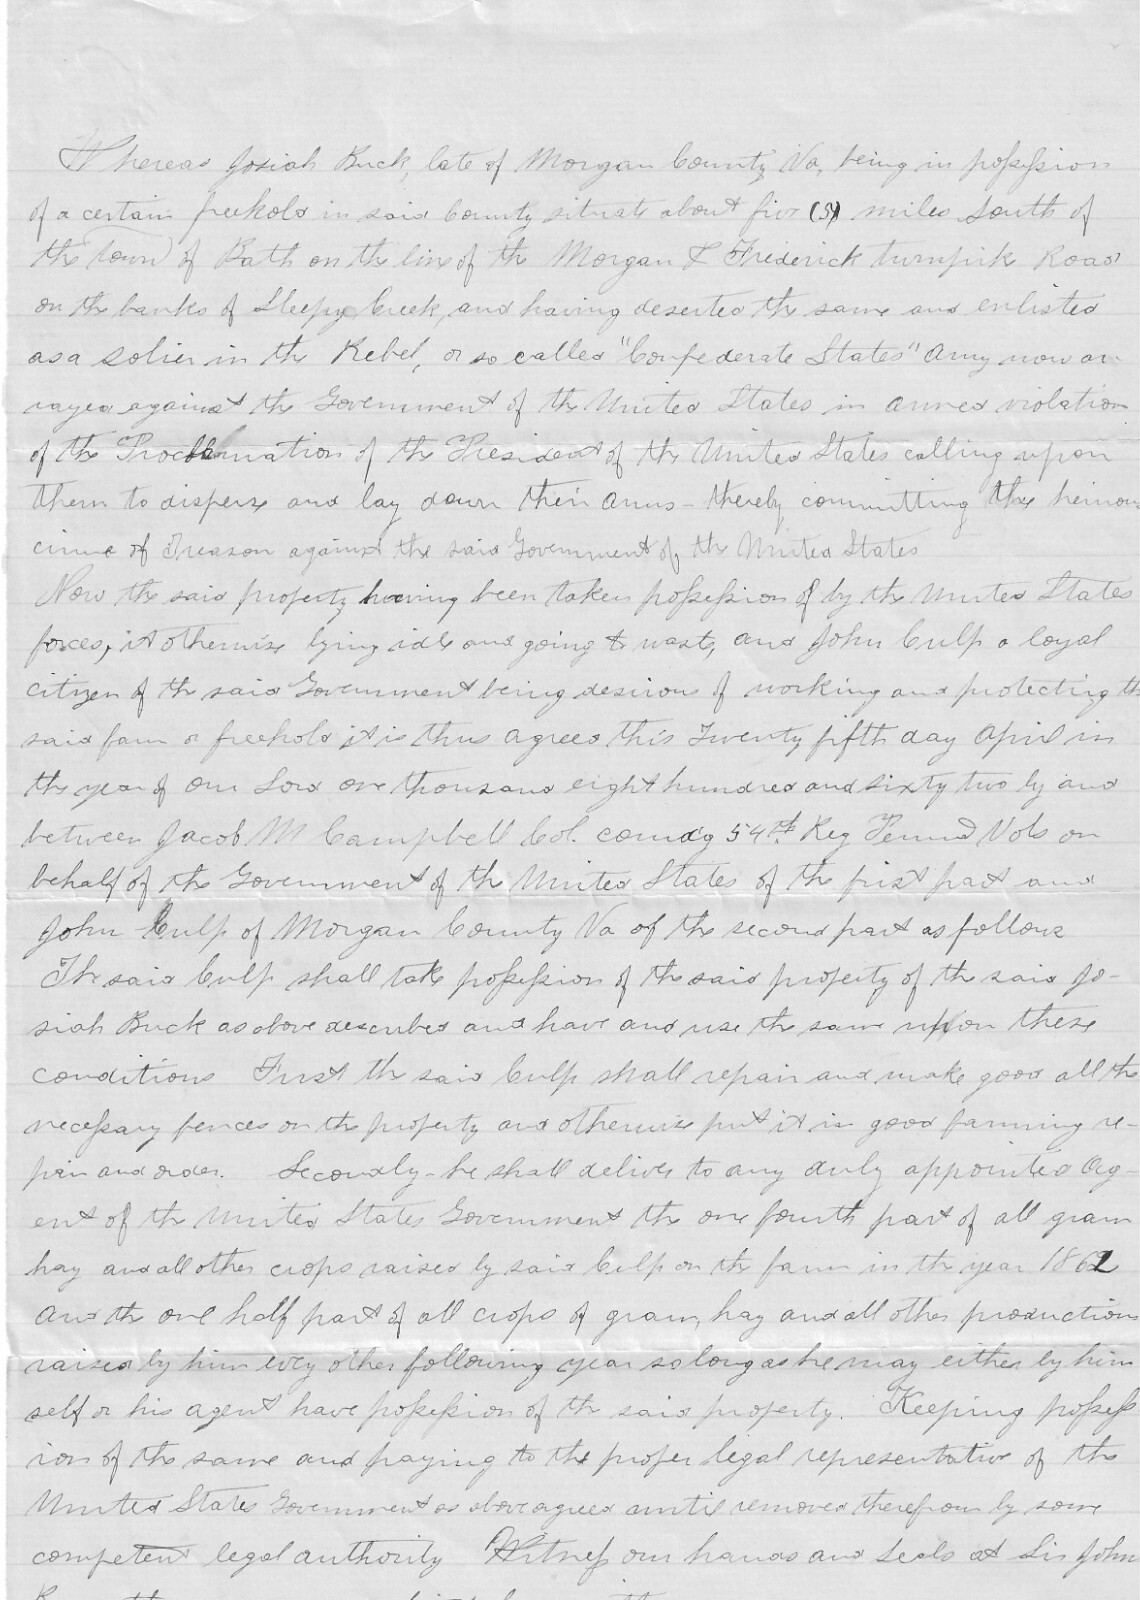 Whereas Josiah Buck, late of Morgan County Va, being in possession
of a certain freehold in said County situate about five (5) miles South of
the (town) of Bath on the line of the Morgan & Frederick turnpike Road
on the banks of Sleepy Creek, and having deserted the same and enlisted
as a solier in the Rebel, or so called "Confederate States" Army now ar-
rayed against the Government of the United States in armed violation
of the Proclamation of the President of the United States calling upon
them to disperse and lay down their arms - thereby committing the heinous
crime of Treason against the said Government of the United States
Now the said property having been taken possession of by the United States
forces, it otherwise lying idle and going to waste, and John Culp a loyal
citizen of the said Government being desirous of working and protecting the
said farm or freehold it is thus agreed this Twenty fifth day April in
the year of our Lord one thousand eight hundred and sixty two by and
between Jacob M Campbell Col. comdg 54th Reg Penna Vols on
behalf of the Government of the United States of the first part and
John Culp of Morgan County Va of the second part as follows
The said Culp shall take possession of the said property of the said Jo-
siah Buck as above described and have and use the same upon these
conditions First the said Culp shall repair and make good all the
necessary fences on the property and otherwise put it in good farming re-
pair and order. Secondly - he shall deliver to any duly appointed Ag-
ent of the United States Government the one fourth part of all grain
hay and all other crops raised by said Culp on the farm in the year 1862
And the one half part of all crops of grain, hay and all other productions
raised by him every other following year so long as he may either by him
self or his agent have possession of the said property. Keeping possess
ion of the same and paying to the proper legal representative of the
United States Government as above agreed until removed therefrom by some
competent legal authority Witness our hands and seals at Sir John